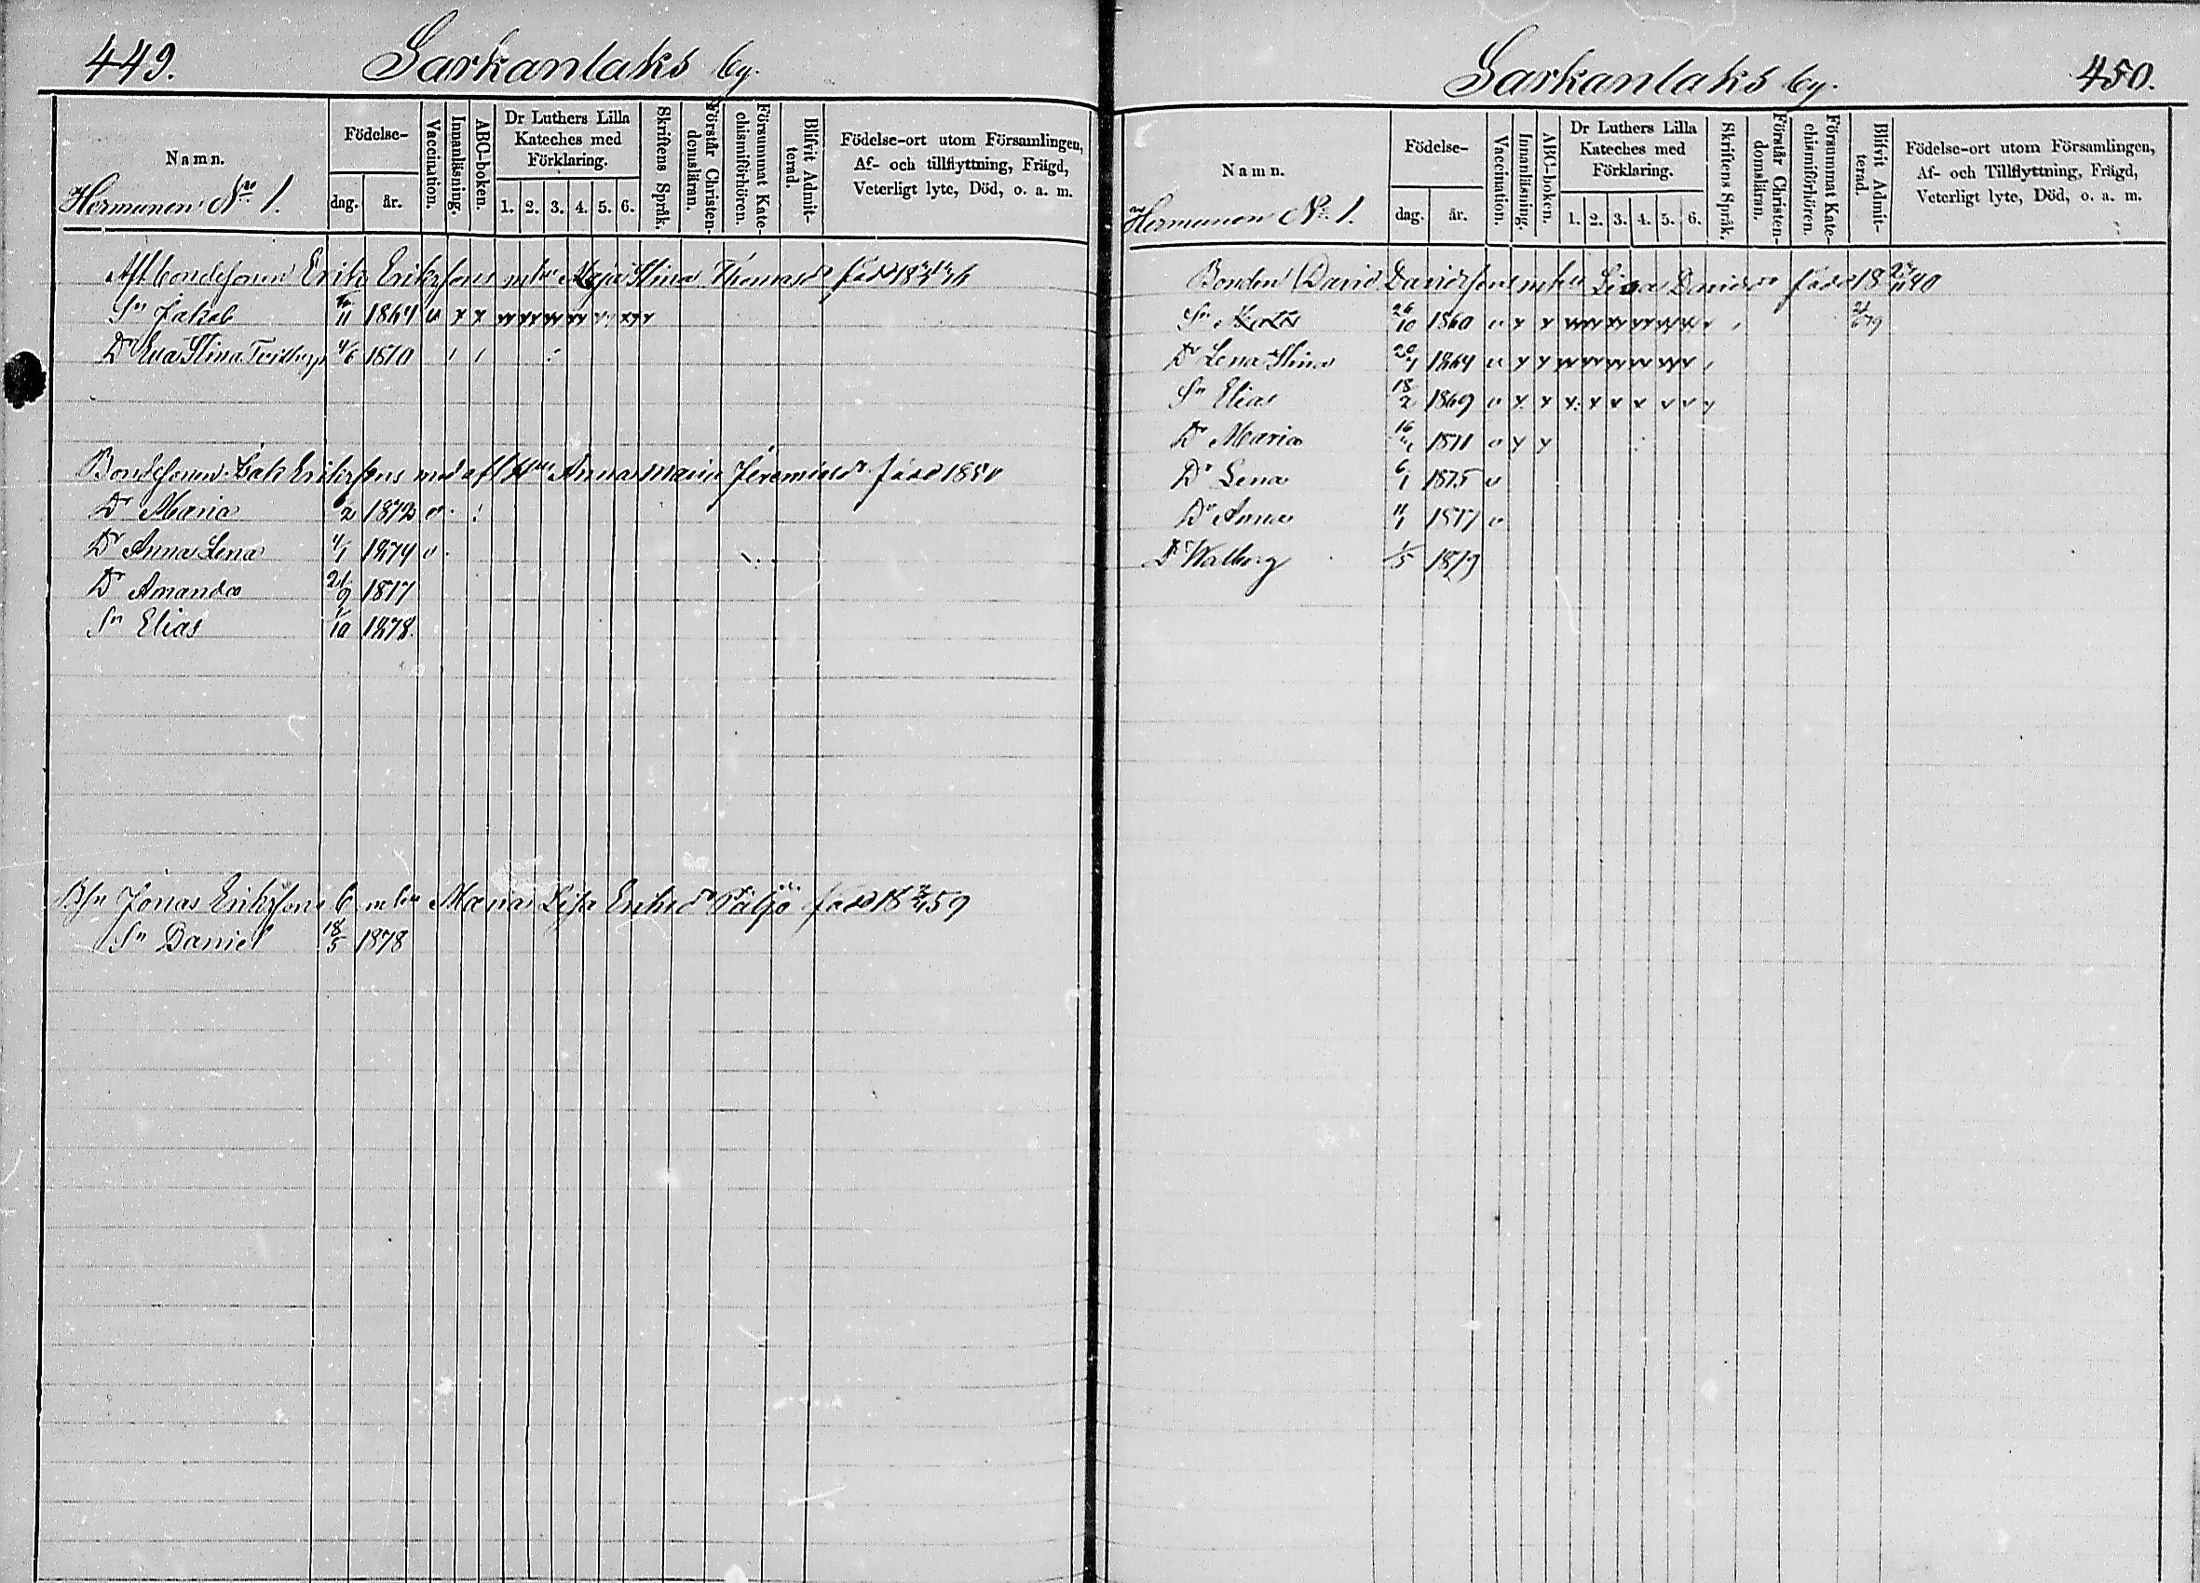 449. Sarkanlaks by.
Namn.
Hermunen No 1.
Födelse-
dag. år.
Vaccination.
Innanläsning.
ABC-boken.
Dr Luthers Lilla
Kateches med
Förklaring.
1. 2. 3. 4. 5. 6.
Skriftens Språk.
Förstår Christen-
domsläran.
Försummat Kate-
chismiförhören.
Blifvit Admit-
terad.
Födelse-ort utom Församlingen,
Af- och tillflyttning, Frägd,
Veterligt lyte, Död, o. a. m.
Erik Erikssons Maja Stina Thomasdr född
Sn Jakob 11 1864 v x x
Dr Eva Stina 4/6 1870
Bondesonen Isak Erikssons Anna Maria Jeremiædr född 1850
Dr Maria 1872 v
Dr Anna Lena 4/1 1874 v
Dr Amanda 21/9 1877
Sn Elias 1/10 1878.
Jonas Erikssons Maria Lisa född 1859
Sn Daniel 18/5 1878
Sarkanlaks by. 450.
Namn.
Hermunen No 1.
Födelse-
dag. år.
Vaccination.
Innanläsning.
ABC-boken.
Dr Luthers Lilla
Kateches med
Förklaring.
1. 2. 3. 4. 5. 6.
Skriftens Språk.
Förstår Christen-
domsläran.
Försummat Kate-
chismiförhören.
Blifvit Admit-
terad.
Födelse-ort utom Församlingen,
Af- och Tillflyttning, Frägd,
Veterligt lyte, Död, o. a. m.
Bonden David Davidssons Davidsdr född 1840
Sn 26/10 1860 v x x
Dr Lena Stina 1864 v x x
Sn Elias 18/2 1869 v x x x x x x v v
Dr Maria 1871 v x x
Dr Lena 6/1 1875 v
Dr Anna 11/1 1877 v
Dr Walborg 1/5 1879